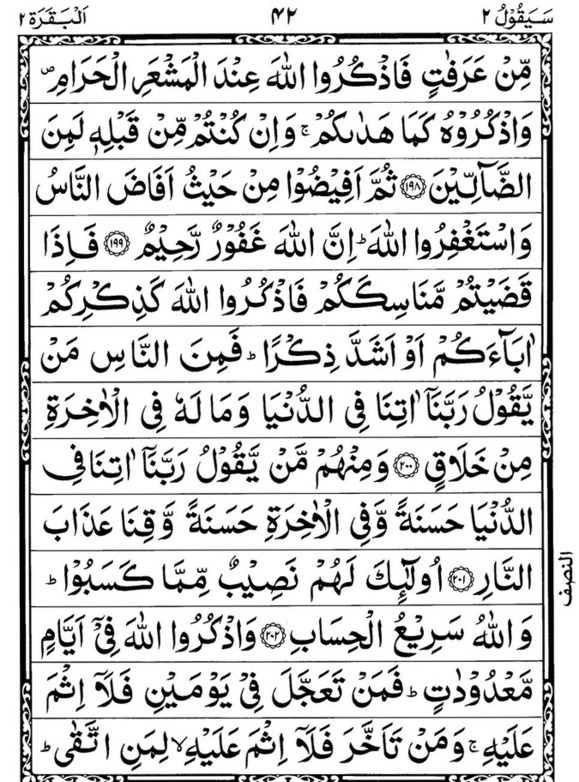 سَيَقُوْلُ ٢ ٤٢ اَلْبَقَرَة ٢
مِّنْ عَرَفٰتٍ فَاذْكُرُوا اللّٰهَ عِنْدَ الْمَشْعَرِ الْحَرَامِ ۪
وَاذْكُرُوْهُ كَمَا هَدٰىكُمْ ۚ وَاِنْ كُنْتُمْ مِّنْ قَبْلِهٖ لَمِنَ
الضَّآلِّيْنَ ﴿١٩٨﴾ ثُمَّ اَفِيْضُوْا مِنْ حَيْثُ اَفَاضَ النَّاسُ
وَاسْتَغْفِرُوا اللّٰهَ ؕ اِنَّ اللّٰهَ غَفُوْرٌ رَّحِيْمٌ ﴿١٩٩﴾ فَاِذَا
قَضَيْتُمْ مَّنَاسِكَكُمْ فَاذْكُرُوا اللّٰهَ كَذِكْرِكُمْ
اٰبَآءَكُمْ اَوْ اَشَدَّ ذِكْرًا ؕ فَمِنَ النَّاسِ مَنْ
يَّقُوْلُ رَبَّنَآ اٰتِنَا فِى الدُّنْيَا وَمَا لَهٗ فِى الْاٰخِرَةِ
مِنْ خَلَاقٍ ﴿٢٠٠﴾ وَمِنْهُمْ مَّنْ يَّقُوْلُ رَبَّنَآ اٰتِنَا فِى
الدُّنْيَا حَسَنَةً وَّفِى الْاٰخِرَةِ حَسَنَةً وَّقِنَا عَذَابَ
النَّارِ ﴿٢٠١﴾ اُولٰٓئِكَ لَهُمْ نَصِيْبٌ مِّمَّا كَسَبُوْا ؕ
وَاللّٰهُ سَرِيْعُ الْحِسَابِ ﴿٢٠٢﴾ وَاذْكُرُوا اللّٰهَ فِىْٓ اَيَّامٍ
مَّعْدُوْدٰتٍ ؕ فَمَنْ تَعَجَّلَ فِىْ يَوْمَيْنِ فَلَآ اِثْمَ
عَلَيْهِ ۚ وَمَنْ تَاَخَّرَ فَلَآ اِثْمَ عَلَيْهِ ۙ لِمَنِ اتَّقٰى ؕ
النصف